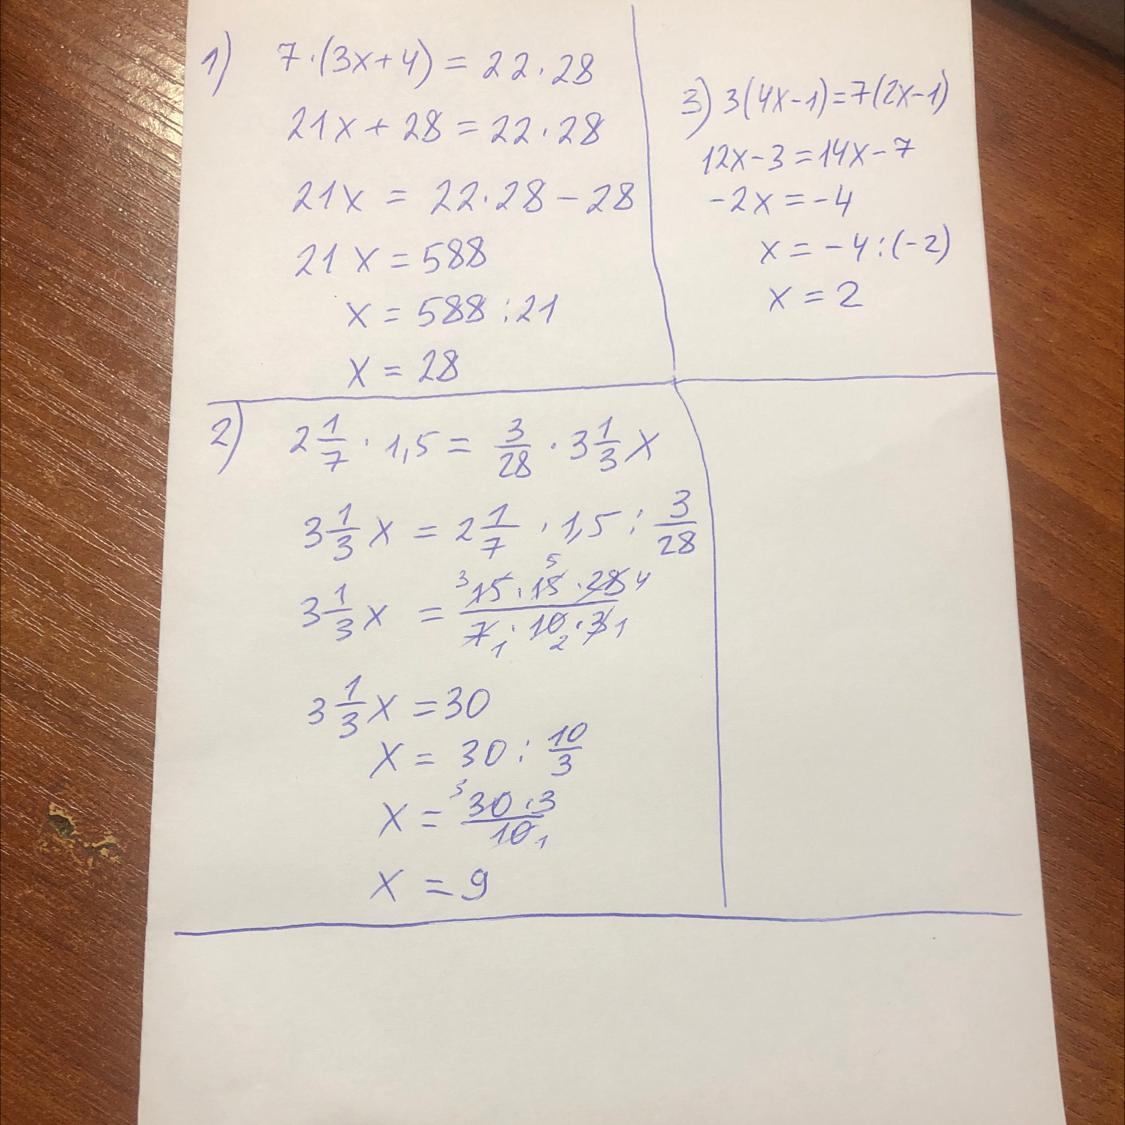 1) 7·(3x+4) = 22·28
21x + 28 = 22·28
21x = 22·28 - 28
21x = 588
x = 588 : 21
x = 28
3) 3(4x-1)=7(2x-1)
12x-3=14x-7
-2x=-4
x=-4:(-2)
x=2
2) 2 1/7 · 1,5 = 3/28 · 3 1/3 x
3 1/3 x = 2 1/7 · 1,5 : 3/28
3 1/3 x = 3 15 · 15 5 · 28 4 / 7 1 · 10 2 · 3 1
3 1/3 x = 30
x = 30 : 10/3
x = 3 30·3 / 10 1
x = 9